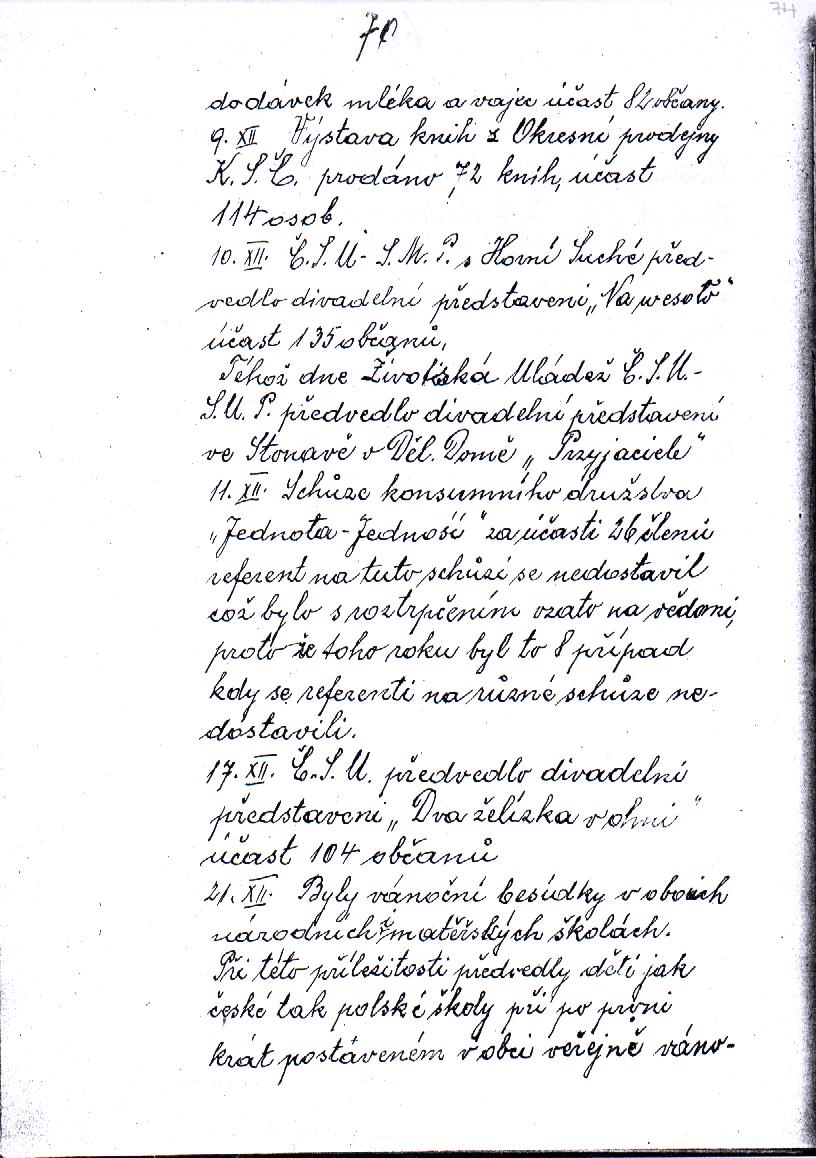 74
70
dodávek mléka a vajec účast 82 občany.
9. XII Výstava knih z Okresní prodejny
K. S. Č. prodáno 72 knih, účast
114 osob.
10. XII. Č. S. M - S. M. P. s Horní Suché před-
vedlo divadelní představeni „Na wesoło"
účast 135 občanů,
Téhož dne Životská Mládež Č. S. M. -
S. M. P. předvedlo divadelní představení
ve Stonavě v Děl. Domě „Przyjaciele"
11. XII. Schůze konsumního družstva
„Jednota - Jedność" za účasti 26 členů
referent na tuto schůzi se nedostavil
což bylo s roztrpčením vzato na vědomí,
proto že toho roku byl to 8 případ
kdy se referenti na různé schůze ne-
dostavili.
17. XII. Č. S. M. předvedlo divadelní
představeni „Dva želízka v ohni"
účast 104 občanů
21. XII. Byly vánoční besídky v oboich
národních i mateřských školách.
Při této příležitosti předvedly děti jak
české tak polské školy při po první
krát postáveném v obci veřejně váno-